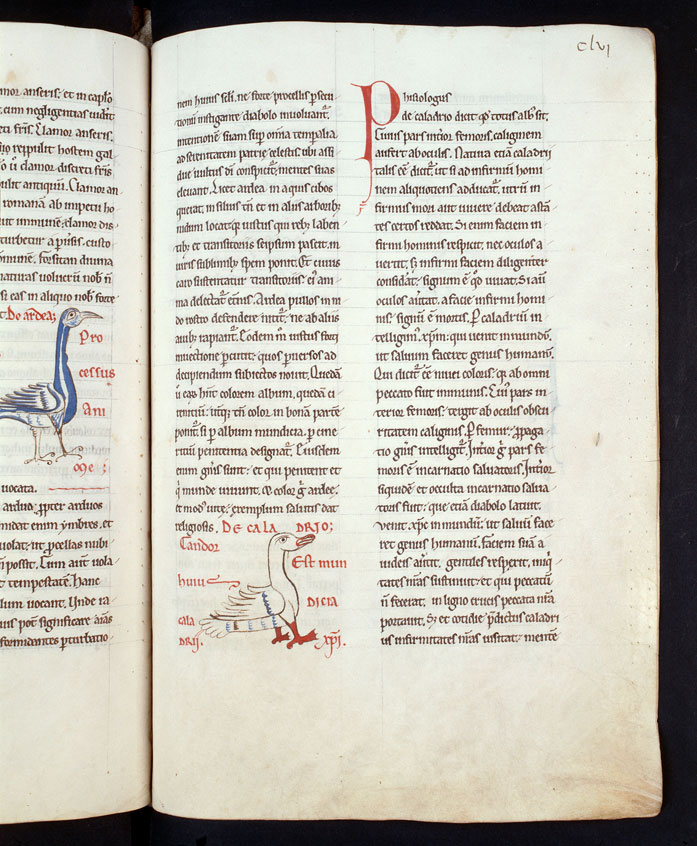 amor anseris: et in caplo
cum negligentias uidit
Clamor anseris
repulit hostem gal
discreti fr̄is
antiquū. Clamor an
romanā ab impetu ho
immune: clamor dis
turbetur a p̄uis. custo
Forsitan diuina
naturas uolucrū nob̄ n̄
si eas in aliquo nob̄ forte
De ardea;
Pro
cessus
Ani
me:
uocata.
ardua: propter arduos
enim ymbres. et
uolat: ut procellas nubi
possit. Cum autē uola
tempestatē. Hanc
uocant. Unde ia
pot̄ significare aīas
formidantes pturbatio
clvi
nem huius scl̄i. ne forte procellis psecu
tionū instigante diabolo inuoluant᷑.
intentionē suam sup om̄ia temporalia
ad serenitatem patrie celestis ubi assi
due uultus di conspicit᷑: mentes suas
eleuant. Licet ardea in aquis cibos
querat: in siluis tn̄ et in altis arboribꝰ
nidum locat: qͥa iustus qui rebꝫ laben
tibꝫ et transitoriis seipsum pascit. in
uiris sublimibꝫ spem ponit. Et cuius
caro sustentatur transitoriis: eiꝰ ani
ma delectat᷑ et̄nis. Ardea pullos in ni
do rostro defendere nitit᷑: ne ab aliis
auibꝫ rapiant᷑. Eodem m̄ iustus forti
inuectione pcutit: quos puersos ad
decipiendum subiectos nouit. Quedā
ū eaꝝ hn̄t colorem album. quedā ci
nereū: utꝰqꝫ tn̄ color in bonā partē
ponit᷑. si p album mundicia. p cine
ritiū penitentia designat᷑. Eiusdem
enim gn̄is sunt: et qui penitent et
qͥ munde uiuunt. Color gͦ ardee.
et modꝰ uite: exemplum salutis dat
religiosis. DE CALADRIO;
Candor
Est mun
huiu
DICIA
CALA
DRII.
XPI.
Phisiologus
de caladrio dicit qꝫ totus albꝰ sit.
Cuius pars interior femoris. caliginem
aufert ab oculis. Natura etiā caladrii
talis eē dicit᷑. ut si ad infirmū homi
nem aliquotiens adducat᷑. utrū in
firmus mori aut uiuere debeat astā
tes certos reddat. Si enim faciem in
firmi hominis respicit. nec oculos a
uertit. sꝫ infirmi faciem diligenter
considat: signum ē qd̄ uiuat. Si aū
oculos au̓tat a facie infirmi homi
nis: signū ē mortis. P caladriū in
telligim᷑. xp̄m: qui uenit in mundū.
ut saluum faceret genus humanū.
Qui dicit᷑ eē niuei coloris: qꝛ ab omni
peccato fuit immunis. Cuiꝰ pars in
terior femoris: tergit ab oculis obscu
ritatem caliginis. P femur: propaga
tio gn̄is intelligit᷑. Int̓ior gͦ pars fe
moris ē incarnatio saluatoris. Int̓ior
siquidē et occulta incarnatio salua
toris fuit: que etiā diabolo latuit.
Venit xp̄c in mundū. ut saluū face
ret genus humanū. Faciem suā a
iudeis au̓tit. gentiles respexit. infir
tates nr̄as sustinuit: et qui peccatū
n̄ fecerat. in ligno crucis peccata nr̄a
portauit. Sꝫ et cotidie pdictus caladri
us infirmitates nr̄as uisitat: mentē